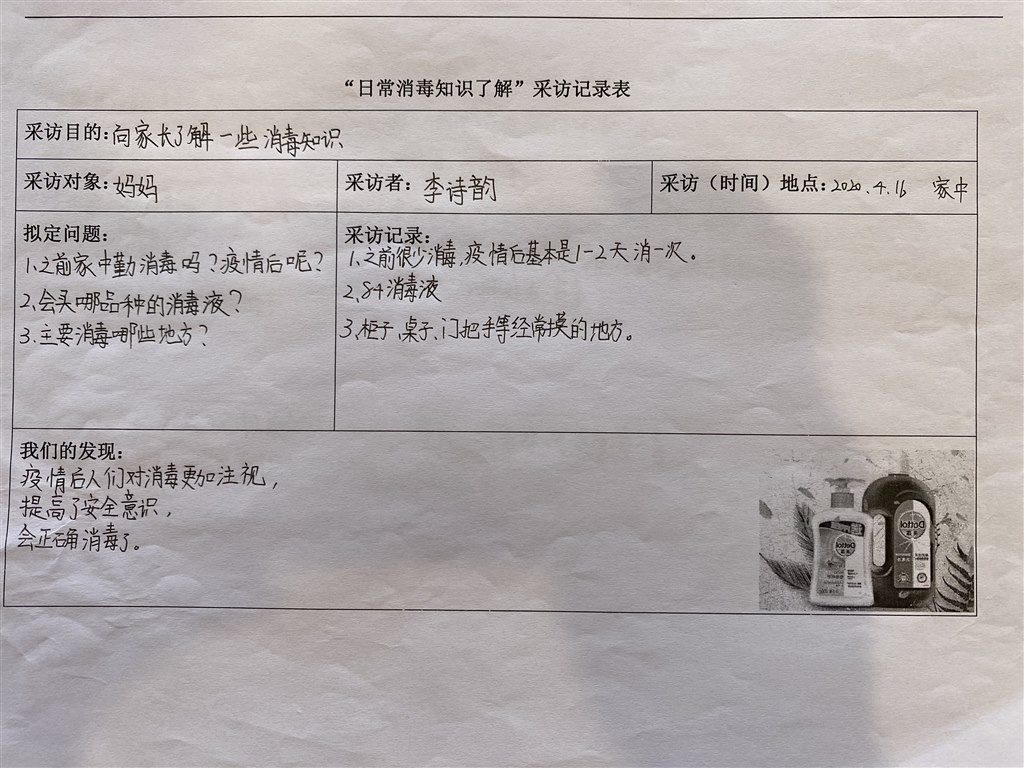 “日常消毒知识了解”采访记录表
采访目的:向家长了解一些消毒知识
采访对象:妈妈
采访者:李诗韵
采访（时间）地点:2020.4.16 家中
拟定问题:
1.之前家中勤消毒吗？疫情后呢？
2.会买哪品种的消毒液？
3.主要消毒哪些地方？
采访记录:
1.之前很少消毒,疫情后基本是1-2天消一次。
2.84消毒液
3.柜子、桌子、门把手等经常摸的地方。
我们的发现:
疫情后人们对消毒更加注视,
提高了安全意识,
会正确消毒了。
Dettol
Dettol